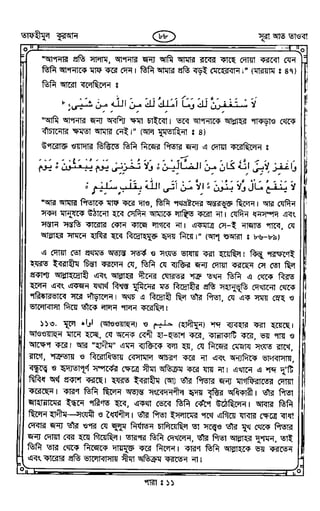 তাফহীমুল কুরআন
৮৮
সূরা আত তাওবা
“আপনার প্রতি সালাম, আপনার জন্য আমি আমার রবের কাছে দোয়া করবো যেন
তিনি আপনাকে মাফ করে দেন। তিনি আমার প্রতি বড়ই মেহেরবান।” (মারয়াম : ৪৭)
তিনি আরো বলেছিলেন :
لَاَسْتَغْفِرَنَّ لَكَ وَمَآ اَمْلِكُ لَكَ مِنَ اللّٰهِ مِنْ شَيْئٍ ،
“আমি আপনার জন্য অবশ্যি ক্ষমা চাইবো। তবে আপনাকে আল্লাহর পাকড়াও থেকে
বাঁচানোর ক্ষমতা আমার নেই।” (আল মুমতাহিনা : ৪)
উপরোক্ত ওয়াদার ভিত্তিতে তিনি নিজের পিতার জন্য এ দোয়া করেছিলেন :
وَاغْفِرْ لِاَبِىْٓ اِنَّهٗ كَانَ مِنَ الضَّآلِّيْنَ ؛ وَلَا تُخْزِنِىْ يَوْمَ يُبْعَثُوْنَ ؛ يَوْمَ
لَا يَنْفَعُ مَالٌ وَّلَا بَنُوْنَ ؛ اِلَّا مَنْ اَتَى اللّٰهَ بِقَلْبٍ سَلِيْمٍ ؛
“আর আমার পিতাকে মাফ করে দাও, তিনি পথভ্রষ্টদের অন্তরভুক্ত ছিলেন। আর যেদিন
সকল মানুষকে উঠানো হবে সেদিন আমাকে লাঞ্ছিত করো না। যেদিন ধনসম্পদ এবং
সন্তান সন্ততি কারোর কোন কাজে লাগবে না। একমাত্র সে-ই নাজাত পাবে, যে
আল্লাহর সামনে হাযির হবে বিদ্রোহমুক্ত হৃদয় নিয়ে।” (আশ্ শুআরা : ৮৬-৮৯)
এ দোয়া তো প্রথমত অত্যন্ত সতর্ক ও সংযত ভাষায় করা হয়েছিল। কিন্তু পরক্ষণেই
হযরত ইবরাহীম চিন্তা করলেন যে, তিনি যে ব্যক্তির জন্য দোয়া করছেন সে তো ছিল
প্রকাশ্য আল্লাহদ্রোহী এবং আল্লাহর দীনের ঘোরতর শত্রু তখন তিনি এ থেকে বিরত
হলেন এবং একজন যথার্থ বিশ্বস্ত মুমিনের মত বিদ্রোহীর প্রতি সহানুভূতি দেখানো থেকে
পরিষ্কারভাবে সরে দাঁড়ালেন। অথচ এ বিদ্রোহী ছিল তাঁর পিতা, যে এক সময় স্নেহ ও
ভালোবাসা দিয়ে তাঁকে লালন পালন করেছিল।
১১৩. মূলে اواه (আওওয়াহুন) ও حليم (হালীমুন) শব্দ ব্যবহার করা হয়েছে।
আওওয়াহুন মানে হচ্ছে, যে অনেক বেশী হা-হুতাশ করে, কান্নাকাটি করে, ভয় পায় ও
আক্ষেপ করে। আর “হালীম” এমন ব্যক্তিকে বলা হয়, যে নিজের মেজায সংযত রাখে,
রাগে, শত্রুতায় ও বিরোধিতায় বেসামাল আচরণ করে না এবং অন্যদিকে ভালবাসায়,
বন্ধুত্বে ও হৃদ্যতাপূর্ণ সম্পর্কের ক্ষেত্রে সীমা অতিক্রম করে যায় না। এখানে এ শব্দ দু’টি
দ্বিবিধ অর্থ প্রকাশ করছে। হযরত ইবরাহীম (আ) তাঁর পিতার জন্য মাগফিরাতের দোয়া
করেছেন। কারণ তিনি ছিলেন অত্যন্ত সংবেদনশীল হৃদয় বৃত্তির অধিকারী। তাঁর পিতা
জাহান্নামের ইন্ধনে পরিণত হবে, একথা ভেবে তিনি কেঁপে উঠেছিলেন। আবার তিনি
ছিলেন হালীম—সংযমী ও ধৈর্যশীল। তাঁর পিতা ইসলামের পথে এগিয়ে যাবার ক্ষেত্রে বাধা
দেবার জন্য তাঁর ওপর যে জুলুম নির্যাতন চালিয়েছিল তা সত্ত্বেও তাঁর মুখ থেকে পিতার
জন্য দোয়া বের হয়ে গিয়েছিল। তারপর তিনি দেখলেন, তাঁর পিতা আল্লাহর দুশমন, তাই
তিনি তার থেকে নিজেকে দায়মুক্ত করে নিলেন। কারণ তিনি আল্লাহকে ভয় করতেন
এবং কারোর প্রতি ভালোবাসায় সীমা অতিক্রম করতেন না।
পারা : ১১